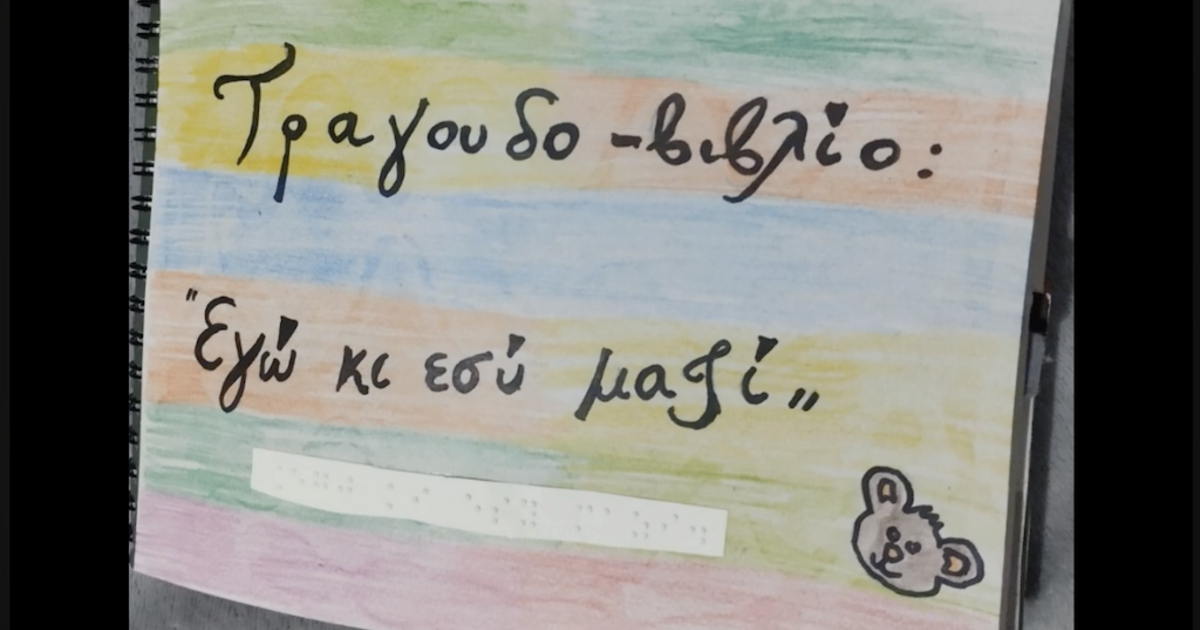 Τραγουδο-βιβλίο:
"Εγώ κι εσύ μαζί„